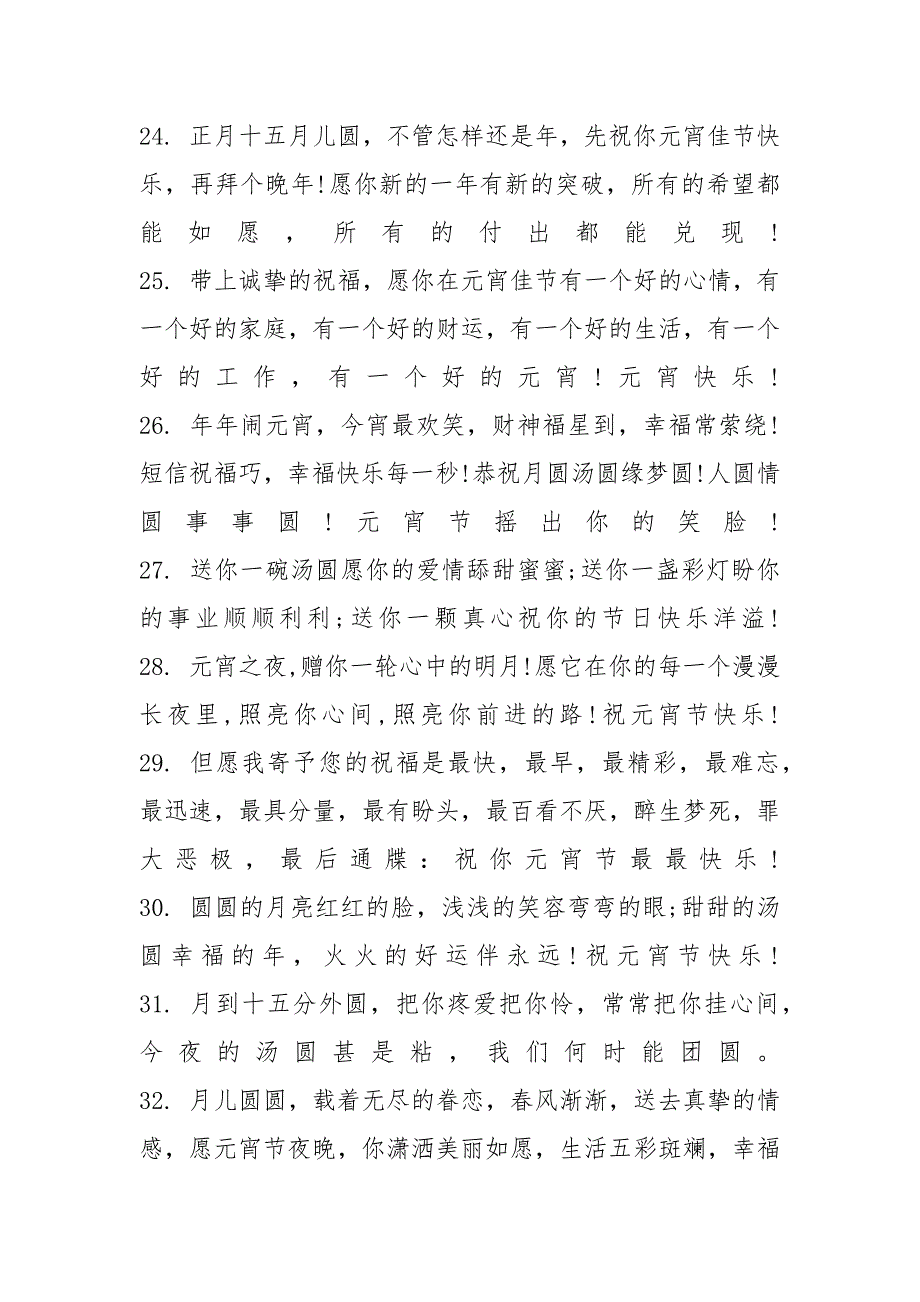 24. 正月十五月儿圆，不管怎样还是年，先祝你元宵佳节快
乐，再拜个晚年!愿你新的一年有新的突破，所有的希望都
能如愿，所有的付出都能兑现!
25. 带上诚挚的祝福，愿你在元宵佳节有一个好的心情，有
一个好的家庭，有一个好的财运，有一个好的生活，有一个
好的工作，有一个好的元宵!元宵快乐!
26. 年年闹元宵，今宵最欢笑，财神福星到，幸福常萦绕!
短信祝福巧，幸福快乐每一秒!恭祝月圆汤圆缘梦圆!人圆情
圆事事圆!元宵节摇出你的笑脸!
27. 送你一碗汤圆愿你的爱情舔甜蜜蜜;送你一盏彩灯盼你
的事业顺顺利利;送你一颗真心祝你的节日快乐洋溢!
28. 元宵之夜,赠你一轮心中的明月!愿它在你的每一个漫漫
长夜里,照亮你心间,照亮你前进的路!祝元宵节快乐!
29. 但愿我寄予您的祝福是最快，最早，最精彩，最难忘，
最迅速，最具分量，最有盼头，最百看不厌，醉生梦死，罪
大恶极，最后通牒：祝你元宵节最最快乐!
30. 圆圆的月亮红红的脸，浅浅的笑容弯弯的眼;甜甜的汤
圆幸福的年，火火的好运伴永远!祝元宵节快乐!
31. 月到十五分外圆，把你疼爱把你怜，常常把你挂心间，
今夜的汤圆甚是粘，我们何时能团圆。
32. 月儿圆圆，载着无尽的眷恋，春风渐渐，送去真挚的情
感，愿元宵节夜晚，你潇洒美丽如愿，生活五彩斑斓，幸福